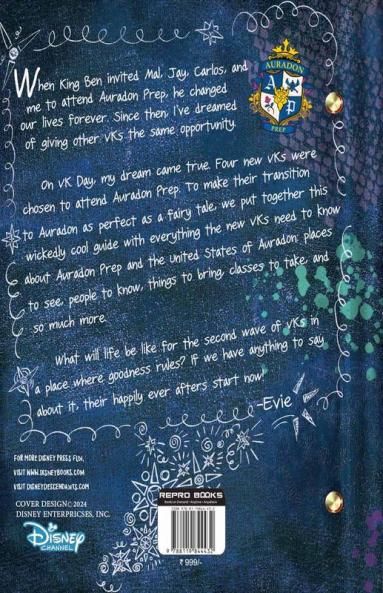 When King Ben invited Mal, Jay, Carlos, and
me to attend Auradon Prep, he changed
our lives forever. Since then, I've dreamed
of giving other VKs the same opportunity.
AURADON
A P
PREP
On VK Day, my dream came true. Four new VKs were
chosen to attend Auradon Prep. To make their transition
to Auradon as perfect as a fairy tale, we put together this
wickedly cool guide with everything the new VKs need to know
about Auradon Prep and the United States of Auradon: places
to see, people to know, things to bring, classes to take, and
so much more.
What will life be like for the second wave of VKs in
a place where goodness rules? If we have anything to say
about it, their happily ever afters start now!
-Evie
FOR MORE DISNEY PRESS FUN,
VISIT WWW.DISNEYBOOKS.COM
VISIT DISNEYDESCENDANTS.COM
COVER DESIGN© 2024
DISNEY ENTERPRICSES, INC.
Disney
CHANNEL
REPRO BOOKS
₹ 999/-